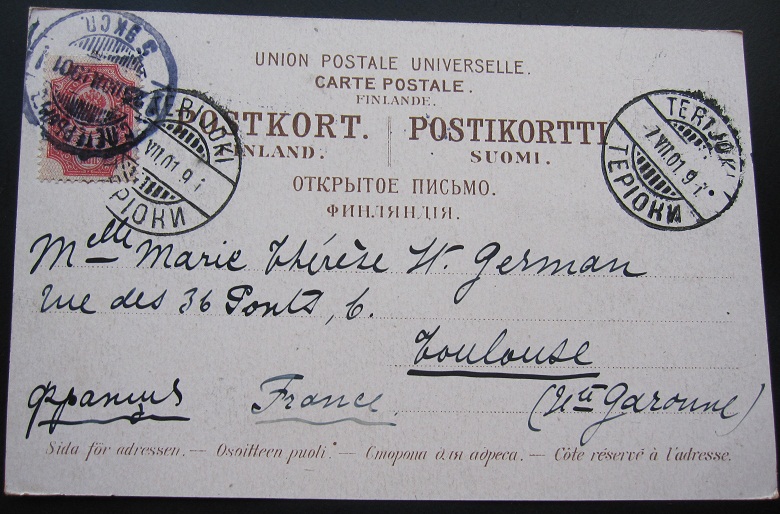 UNION POSTALE UNIVERSELLE.
CARTE POSTALE.
FINLANDE.
POSTKORT. POSTIKORTTI
FINLAND. SUOMI.
ОТКРЫТОЕ ПИСЬМО.
ФИНЛЯНДІЯ.
TERIJOKI
VII.01.9 i
ТЕРІОКИ
TERIJOKI
7.VII.01.9 i
ТЕРІОКИ
Melle Marie Thérèse St. German
rue des 36 Ponts, 6.
Toulouse
Франция France
(Hte Garonne)
Sida för adressen. — Osoitteen puoli. — Сторона для адреса. — Côte réservé à l'adresse.